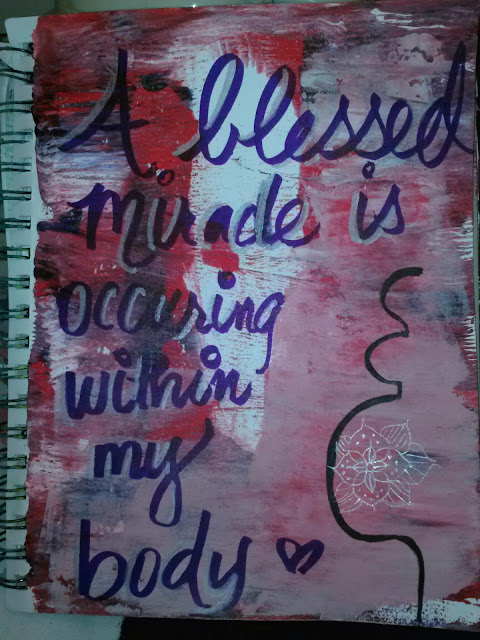 A blessed
miracle is
occuring
within
my
body ♡